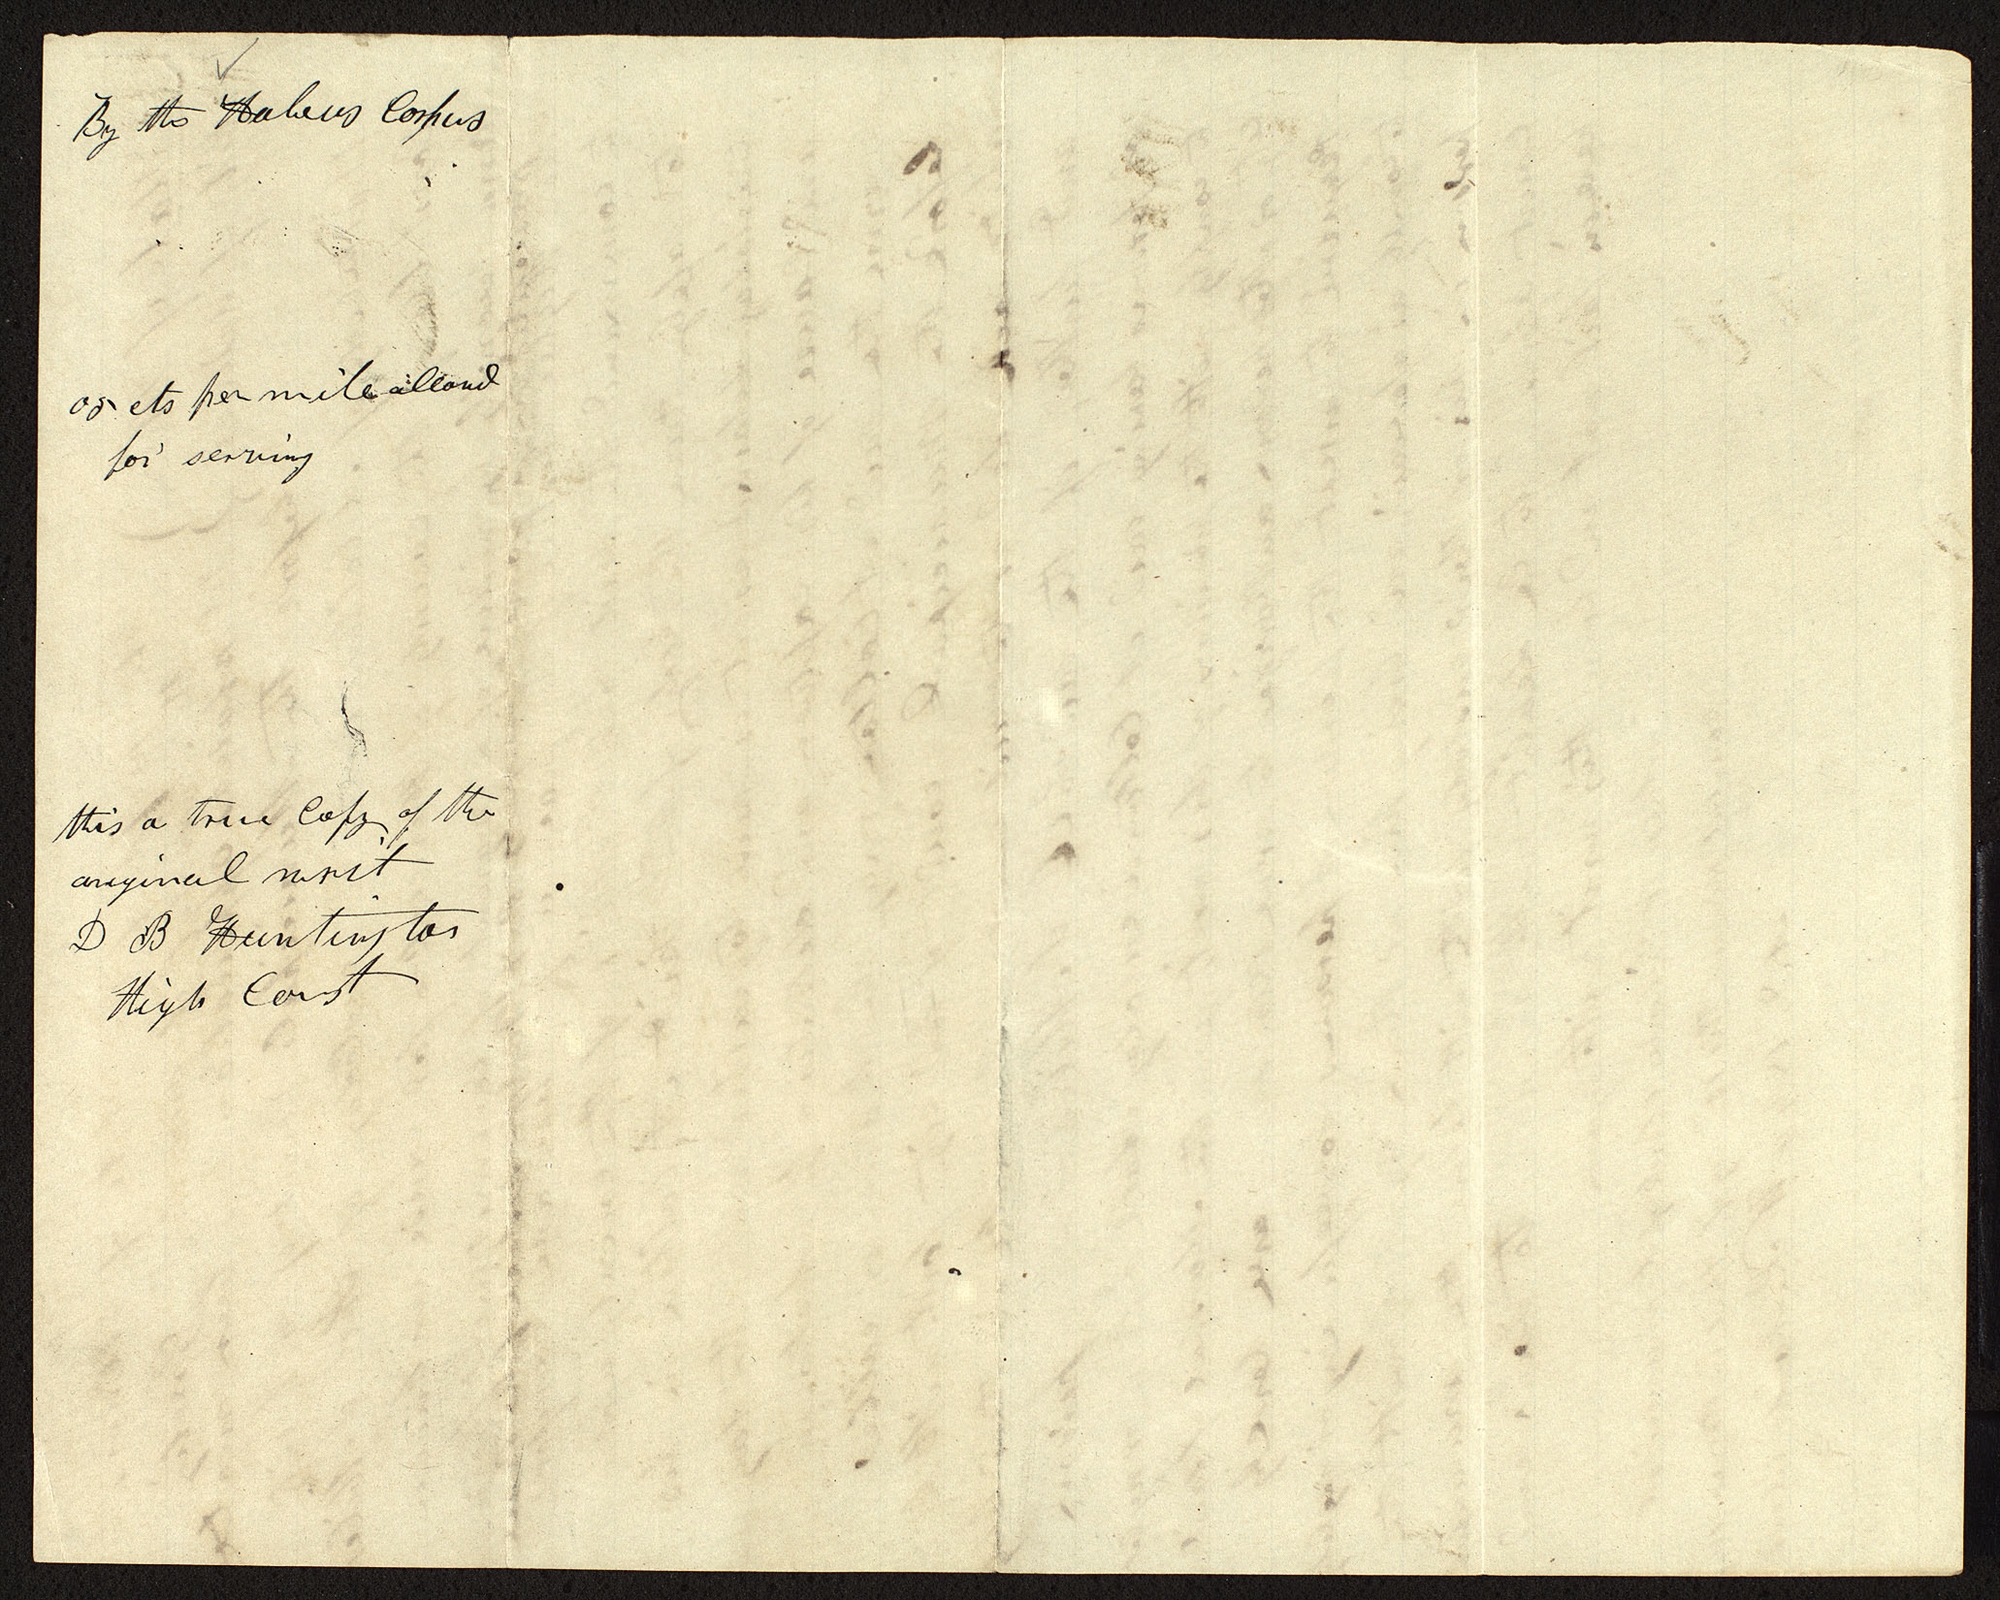 By the Habeus Corpus
05 cts per mile allowd
for serving
this a true Copy of the
original writ
D B Huntington
High Const